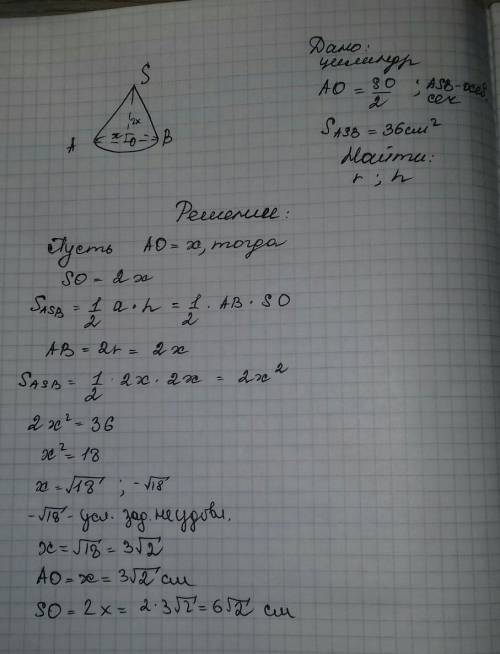 S
2x
x
A
O
B
Дано:
цилиндр
AO = SO/2 ; ASB - осев.
сеч
S_ASB = 36 см²
Найти:
r ; h
Решение:
Пусть AO = x, тогда
SO = 2x
S_ASB = 1/2 a · h = 1/2 · AB · SO
AB = 2r = 2x
S_ASB = 1/2 · 2x · 2x = 2x²
2x² = 36
x² = 18
x = √18 ; -√18
-√18 - усл. зад. не удовл.
x = √18 = 3√2
AO = x = 3√2 см
SO = 2x = 2·3√2 = 6√2 см